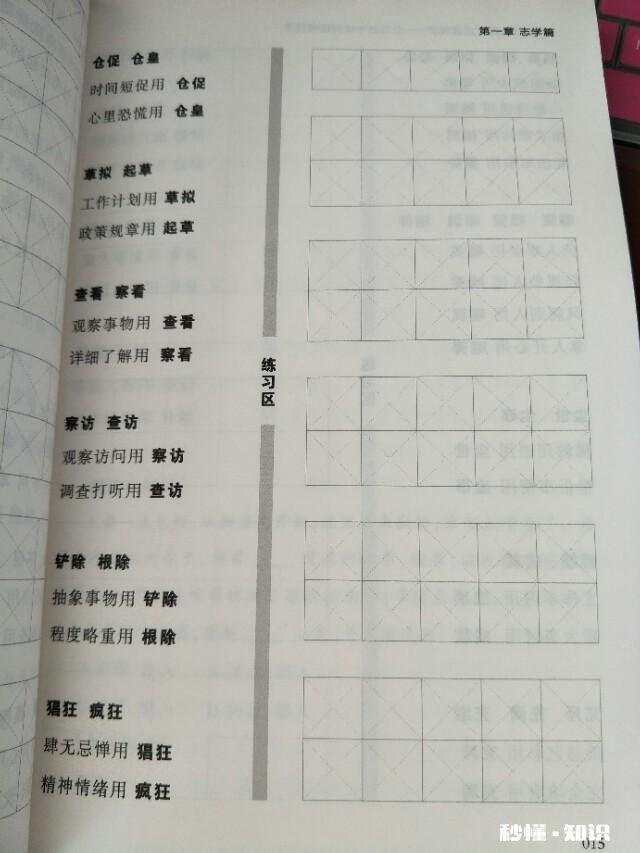 第一章 志学篇
仓促 仓皇
时间短促用 仓促
心里恐慌用 仓皇
草拟 起草
工作计划用 草拟
政策规章用 起草
查看 察看
观察事物用 查看
详细了解用 察看
察访 查访
观察访问用 察访
调查打听用 查访
铲除 根除
抽象事物用 铲除
程度略重用 根除
猖狂 疯狂
肆无忌惮用 猖狂
精神情绪用 疯狂
练习区
秒懂·知识
015